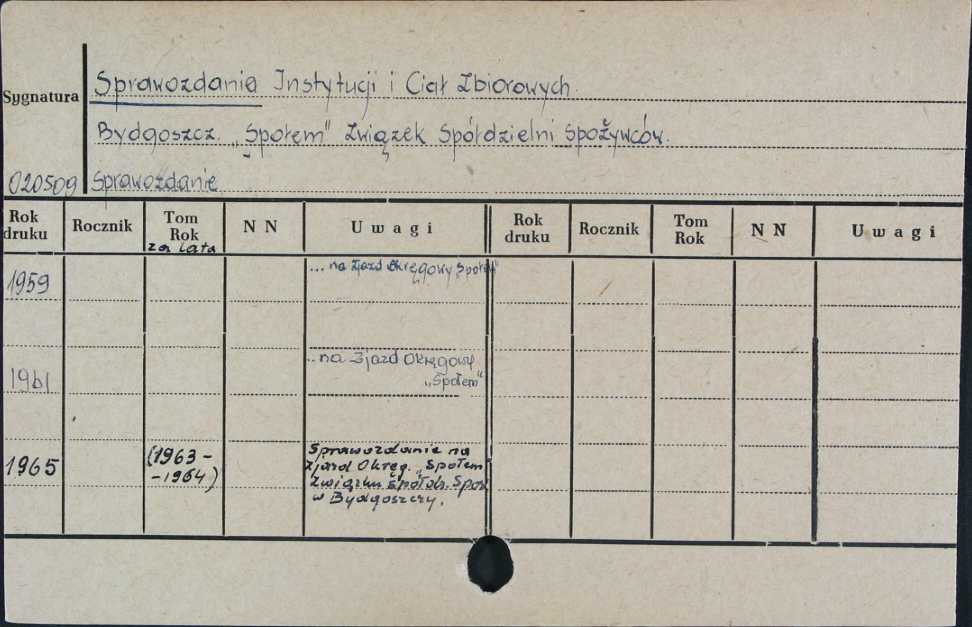 Sprawozdania Instytucji i Ciał Zbiorowych.
Sygnatura
Bydgoszcz. „Społem" Związek Spółdzielni Spożywców.
020509 Sprawozdanie
Rok druku Rocznik Tom Rok za lata N N Uwagi Rok druku Rocznik Tom Rok N N Uwagi
1959 ... na Zjazd Okręgowy „Społem"
1961 ... na Zjazd Okręgowy
„Społem"
1965 (1963 - - 1964) Sprawozdanie na
Zjazd Okręg. „Społem"
Związku Spółdz. Spoż.
w Bydgoszczy.